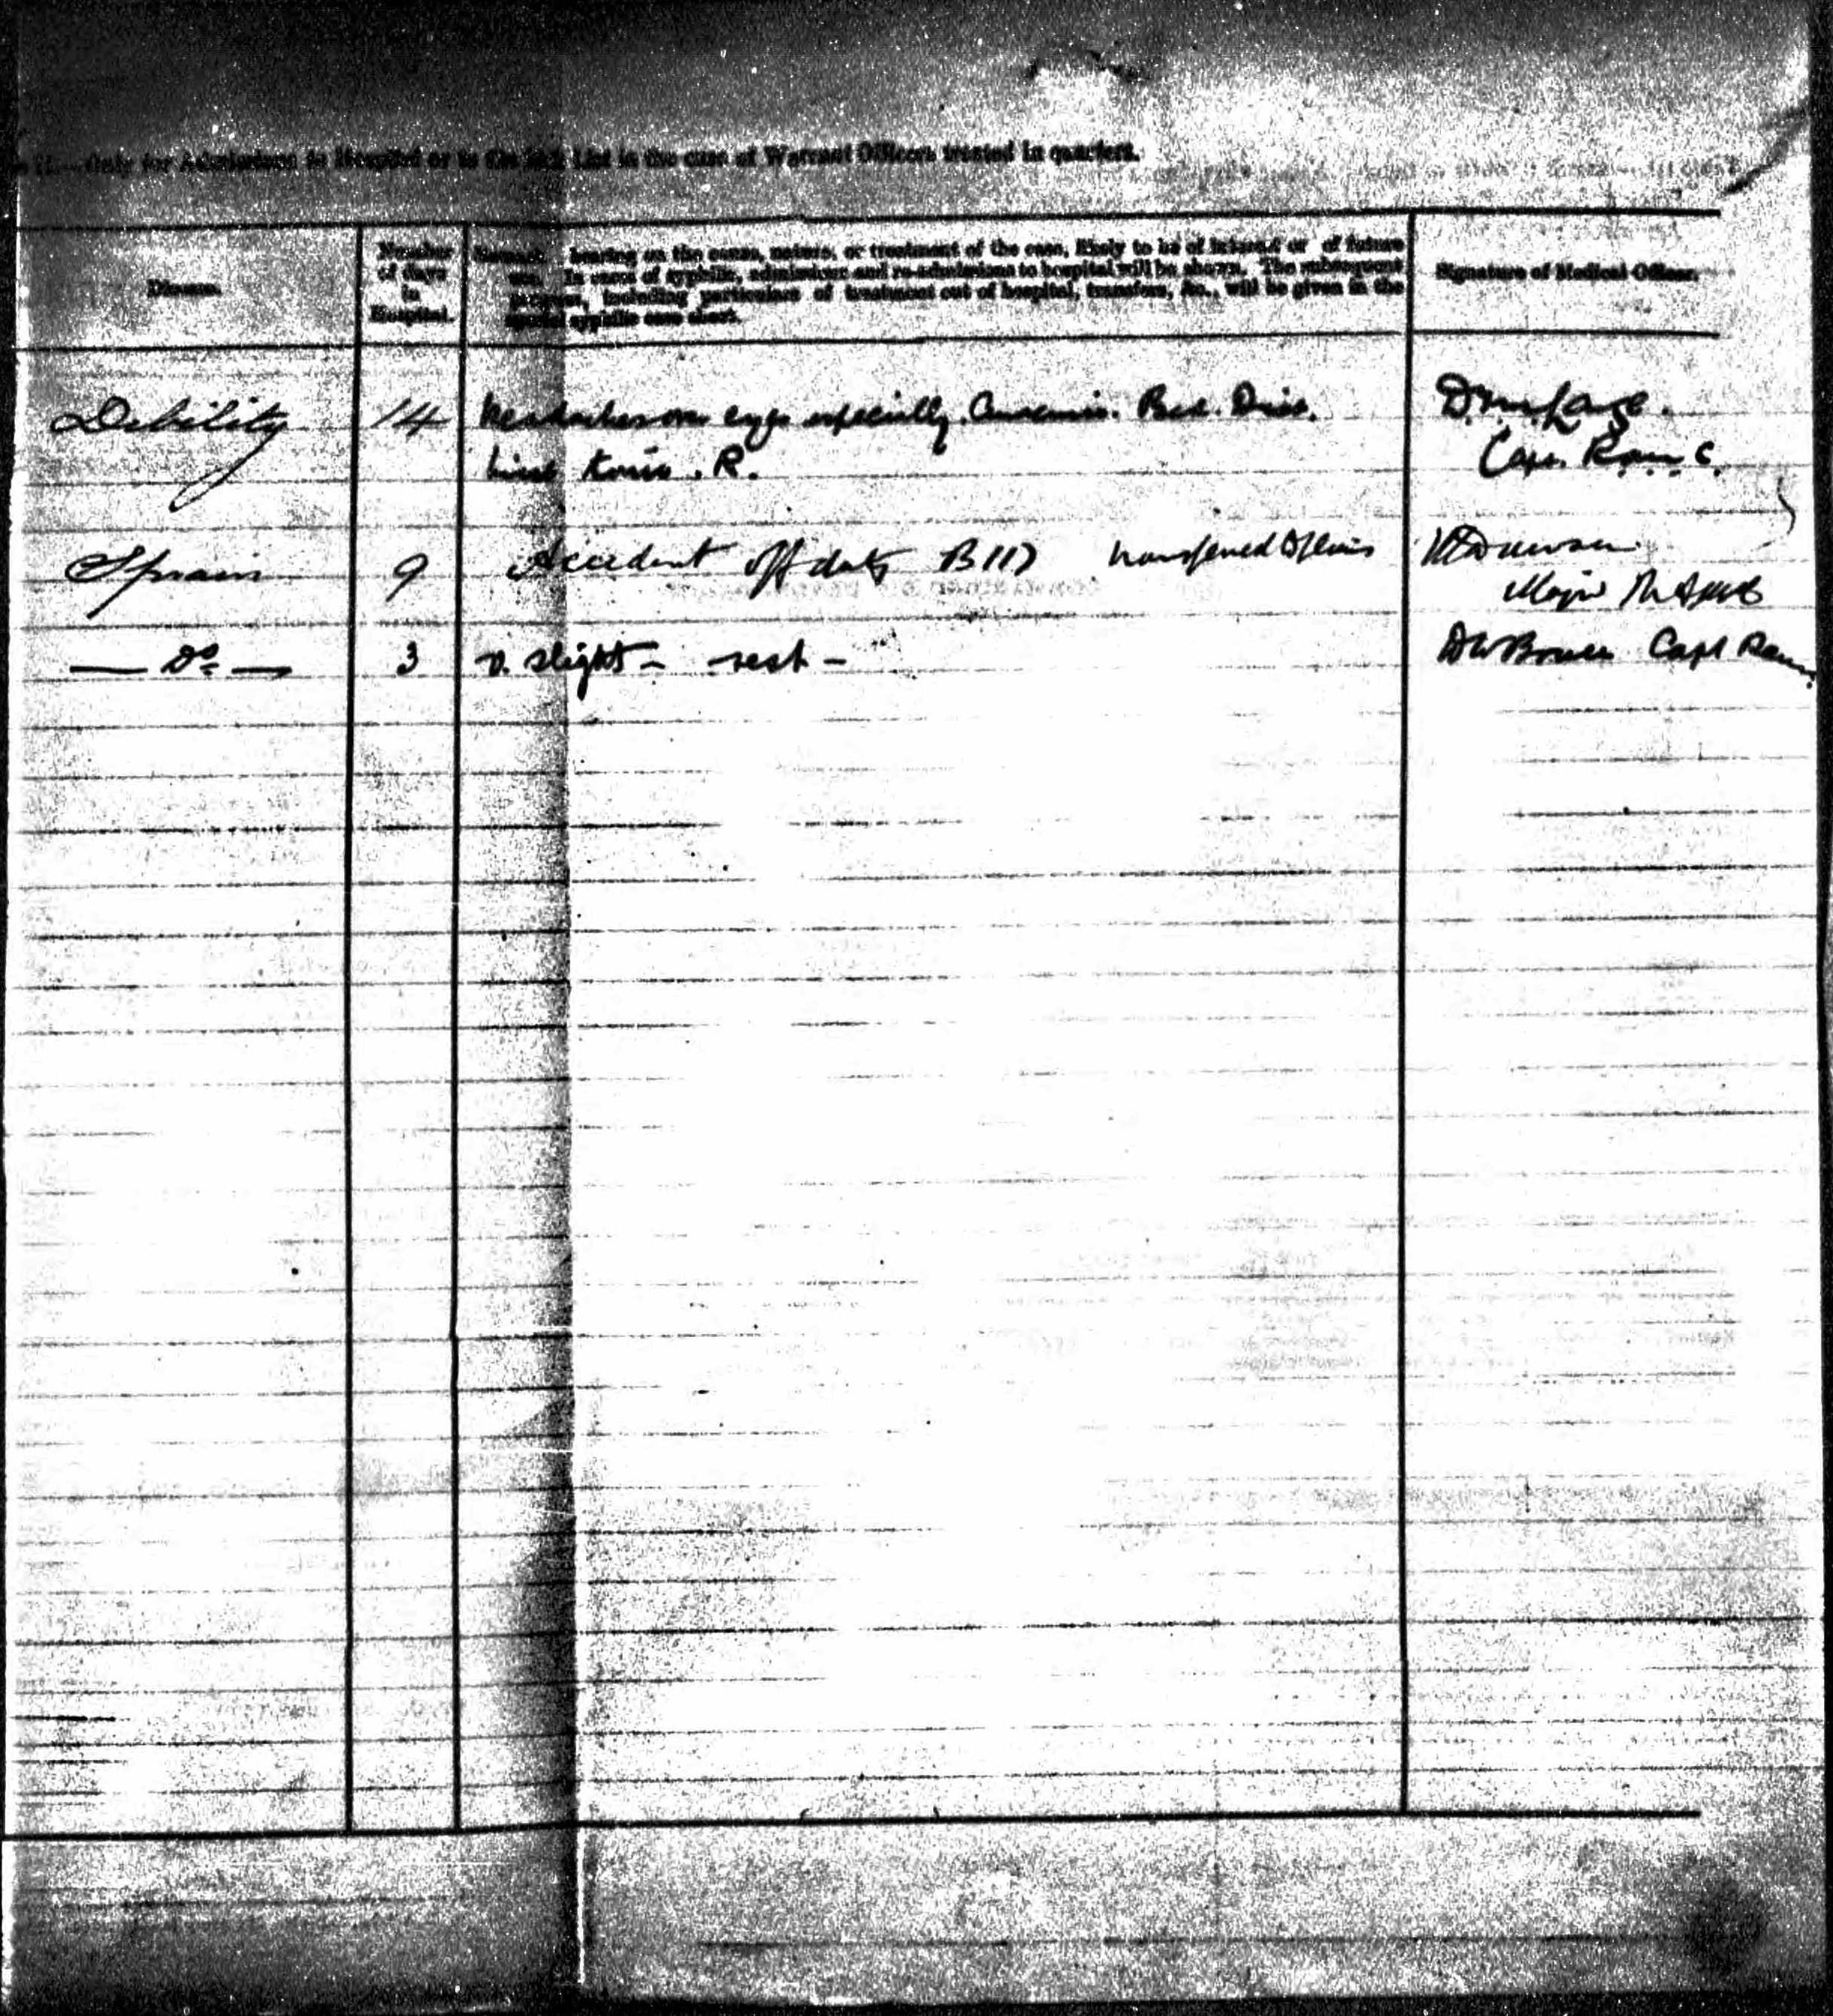 Only for Admission to Hospital or to the Sick List in the case of Warrant Officers treated in quarters.
Disease.
Number
of days
in
Hospital.
Remarks bearing on the cause, nature, or treatment of the case, likely to be of interest or of future
use. In cases of syphilis, admissions and re-admissions to hospital will be shown. The subsequent
progress, including particulars of treatment out of hospital, transfers, &c., will be given in the
special syphilis case sheet.
Signature of Medical Officer.
Debility 14 Headaches over eyes especially. Anaemic. Bed. Diet.
Tonic. R.
Capt. R.A.M.C.
Sprain 9 Accident off duty B117 transferred
Major
— Do — 3 v. slight – rest –
Capt